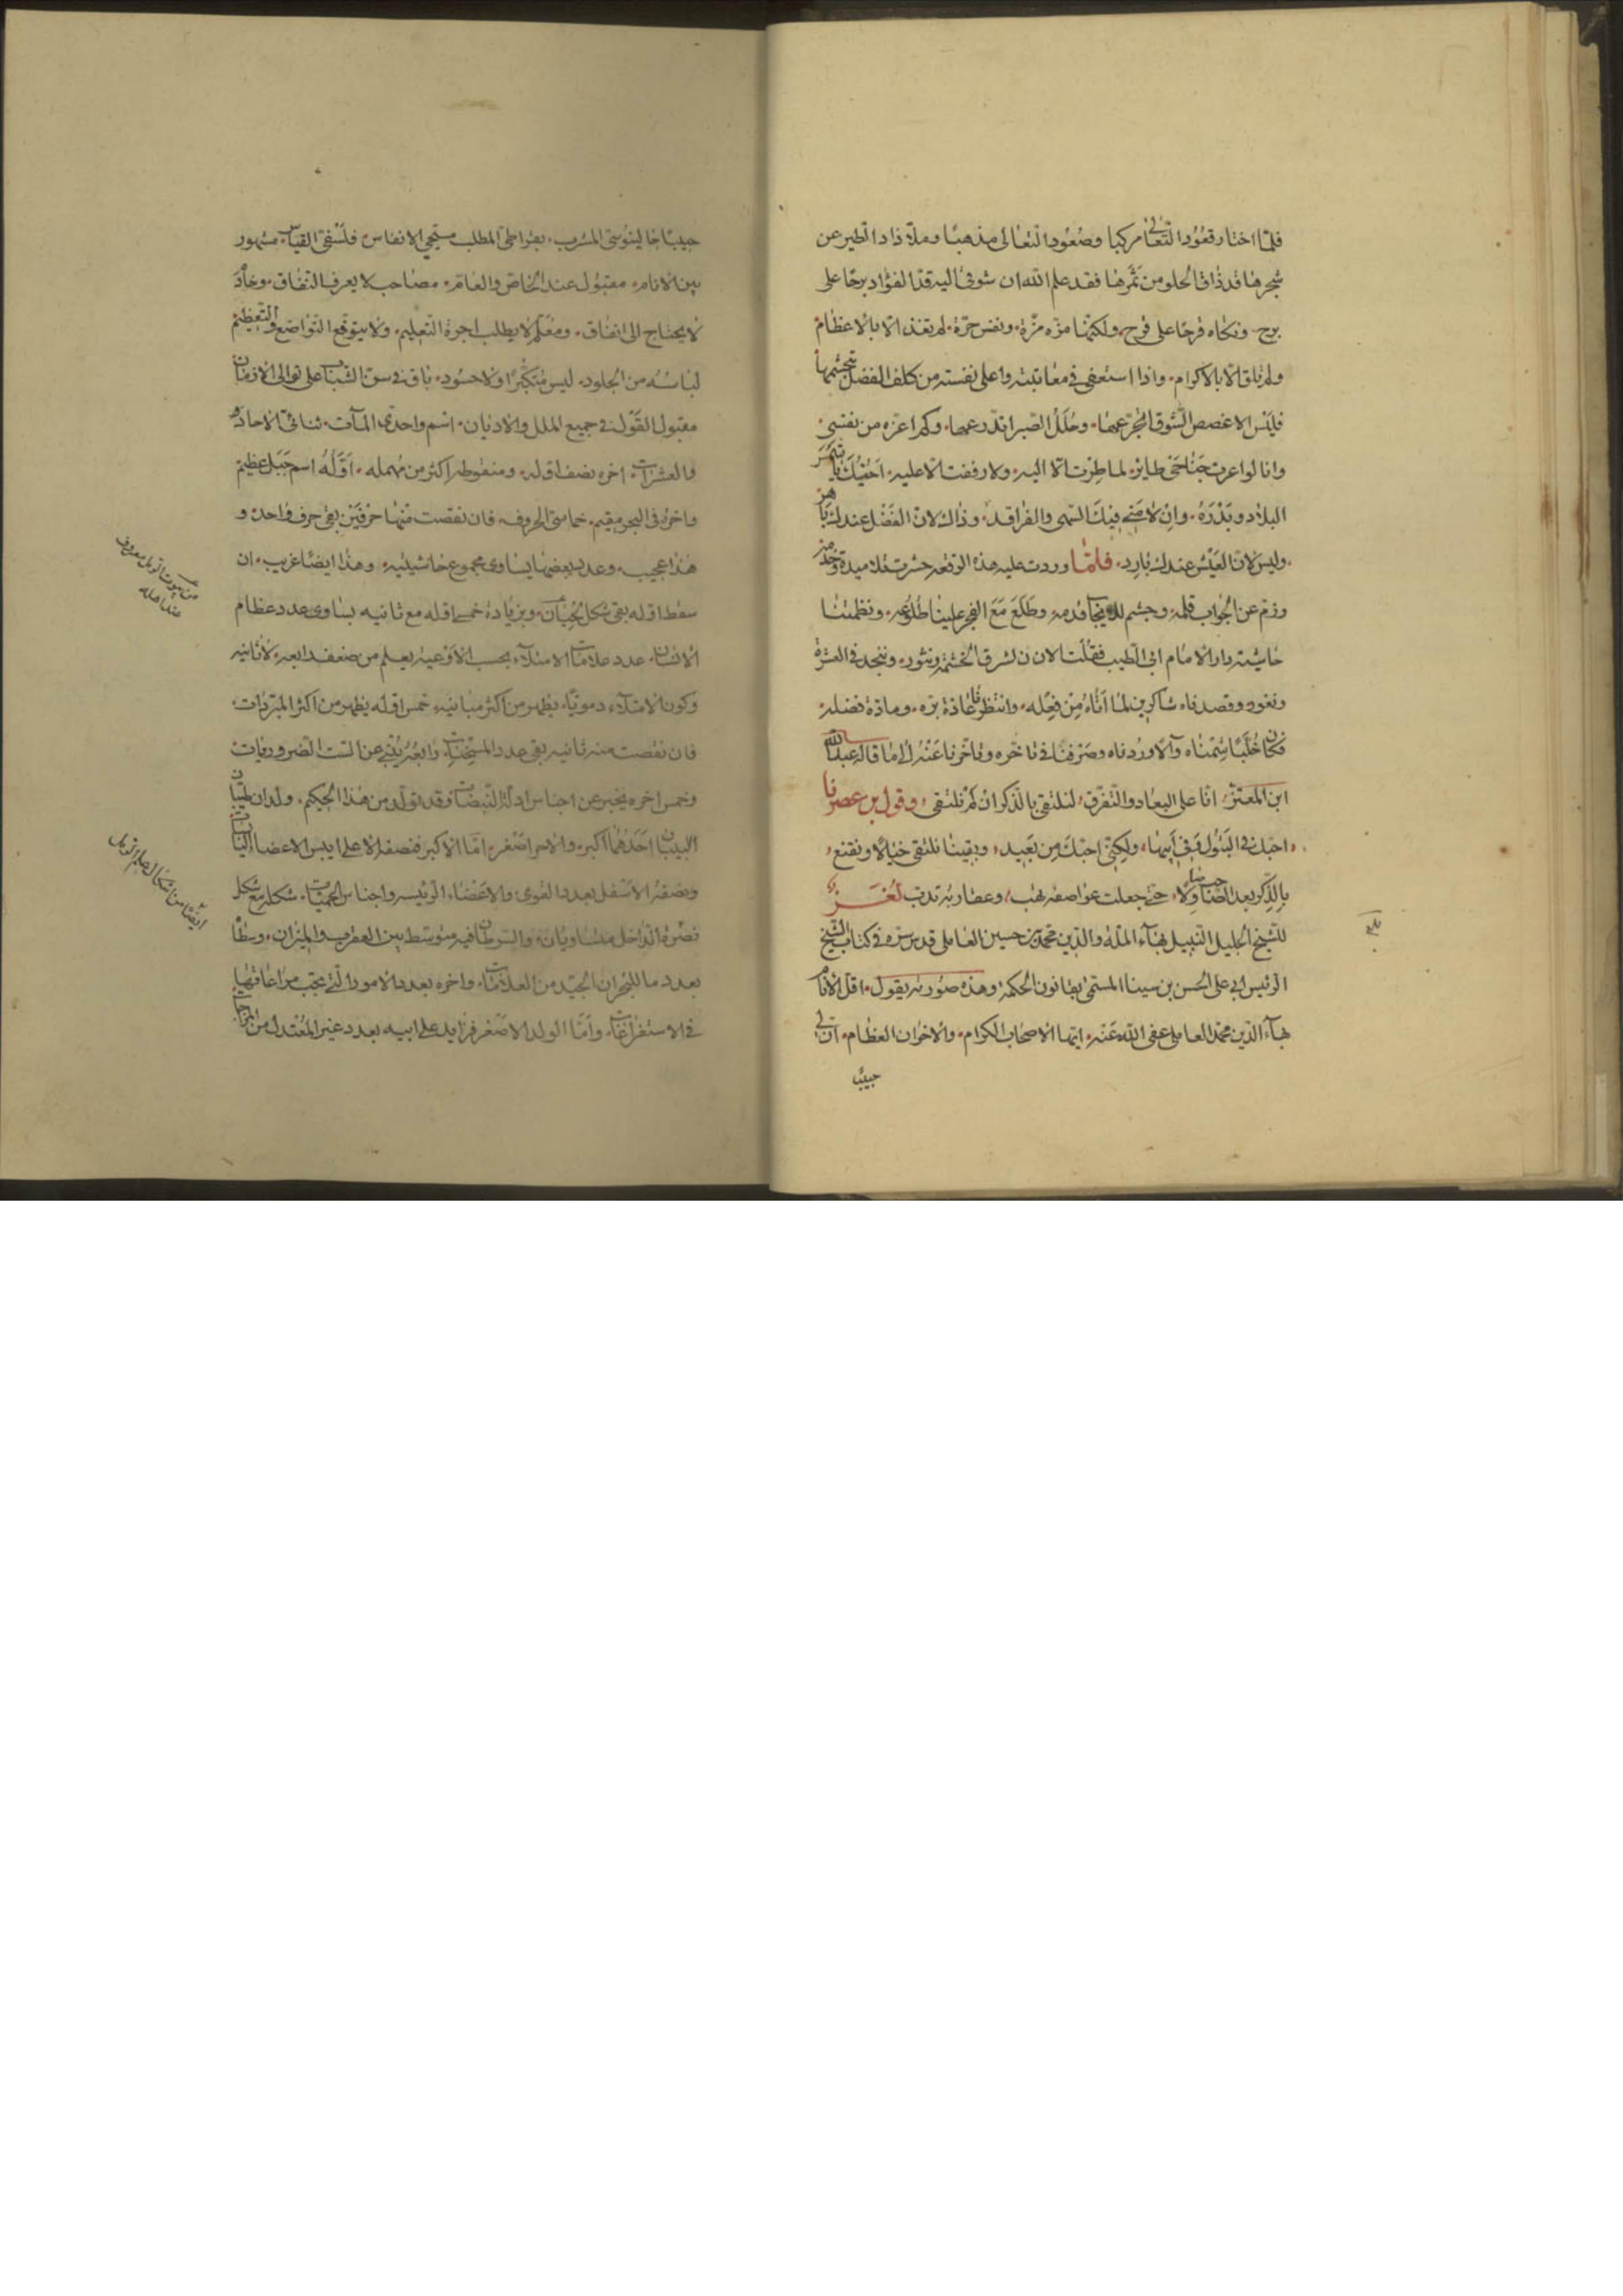 فلمّا اختار قعود التعالى مركبا وصعود التعالى مذهبا وملّا ذاد الطير عن
شجرها قد ذاق الحلو من ثمرها فقد علم الله ان شوقى اليه قدّ الفؤاد برحا على
برح ونكاه قرحا على قرح ولكنّها مرّه مرّة ونفس حرّة لم تقد الا بالاعظام
ولم تلق الا بالاكرام واذا استعفى فى معاتبته واعلى نفسته من كلف الفضل بتجشمها
فليس الا غصص الشوق اتجرعها وحلل الصبر اتدرعها ولم اعره من نفسى
وانا لو اعرت جناحى طاير لما طرت الا اليه ولا وقعت الا عليه احبك يا شمس
البلاد وبدره وان لامنى فيك السهى والفراقد وذاك لان الفضل عندك باهر
وليس لان العيش عندك بارد فلمّا وردت عليه هذه الرقعه حشرت تلاميذه وخدمه
وزم عن الجواب قلمه وجشم للايجاب قدمه وطلع مع الفجر علينا طلوعه ونظمتنا
حاشيتا دار الامام ابى الطيب فقلت الان تشرق الحشمة وتنور وتنجد فى العشرة
وتغور وقصدناه شاكرين لما اتاه من فعله وانتظرنا عادة بره ومادة فضله
فكان خلّبا شمناه وآلا وردناه وصرفنا فى تاخره وتاخرنا عنه الى ما قاله عبد الله
ابن المعتز انا على البعاد والتفرق لنلتقى بالذكر ان لم نلتقى وقول ابن عصرنا
احبك فى البتول وفى ابيها ولكنى احبك من بعيد وبقينا نلتقى خيالا ونقنع
بالذكر بعد وصالا حتى جعلت عواصفه تهب وعقاربه تدب لغز
للشيخ الجليل النبيل بهآء الملة والدين محمد بن حسين العاملى قدس سره فى كتاب الشيخ
الرئيس ابى على الحسن بن سينا المسمى بقانون الحكمة وهذه صورته يقول اقل الانام
بهآء الدين محمد العاملى عفى الله عنه ايها الاصحاب الكرام والاخوان العظام ان لى
حبيبا
حبيبا جالينوسى المشرب بقراطى المطلب مسيحى الانفاس فلسفى القياس مشهور
بين الانام مقبول عند الخاص والعام مصاحب لا يعرف النفاق وخادم
لا يحتاج الى انفاق ومعلم لا يطلب اجرة التعليم ولا يتوقع التواضع والتعظيم
لباسه من الجلود ليس متكبرا ولا حسود باق فى سن الشباب على توالى الازمان
مقبول القول فى جميع الملل والاديان اسم واحدى المآت ثنائى الاحاد
والعشرات اخره نصف اوله ومنقوطه اكثر من مهمله اوله اسم جبل عظيم
واخره فى البحر مقيم خماسى الحروف فان نقصت منها حرفين بقى حرف واحد و
هذا عجيب وعدد بعضها يساوى مجموع حاشيتيه وهذا ايضا غريب ان
سقط اوله بقى شكل لحيان وبزيادة خمس اوله مع ثانيه يساوى عدد عظام
الانسان عدد علامات الامتلاء بحسب الاوعيه يعلم من ضعف رابعه لا ثانيه
وكون الامتلاء دمويا يظهر من اكثر مبانيه خمس اوله يظهر من اكثر المبردات
فان نقصت منه ثانيه بقى عدد المسخنات رابعه ينبئ عن الست الضروريات
وخمس اخره يخبر عن اجناس ادلة النبضات وقد تولد من هذا الحكيم ولدان لحيان
احدهما اكبر والاخر اصغر امّا الاكبر فنصفه الاعلى ايبس الاعضا
ونصفه الاسفل بعدد القوى والاعضاء الرئيسه واجناس الحميات شكله مع شكل
نصرة الداخل متساويان والسرطان فيه متوسط بين العقرب والميزان وسطاه
بعدد ما للبحران الجيد من العلامات واخره بعدد الامور التى يجب مراعاتها
فى الاستفراغات وامّا الولد الاصغر فزايد على ابيه بعدد غير المعتدل من المزاجات
من بيوت الرمل معروف
عند اهله
ايضا من اشكال علم الرمل